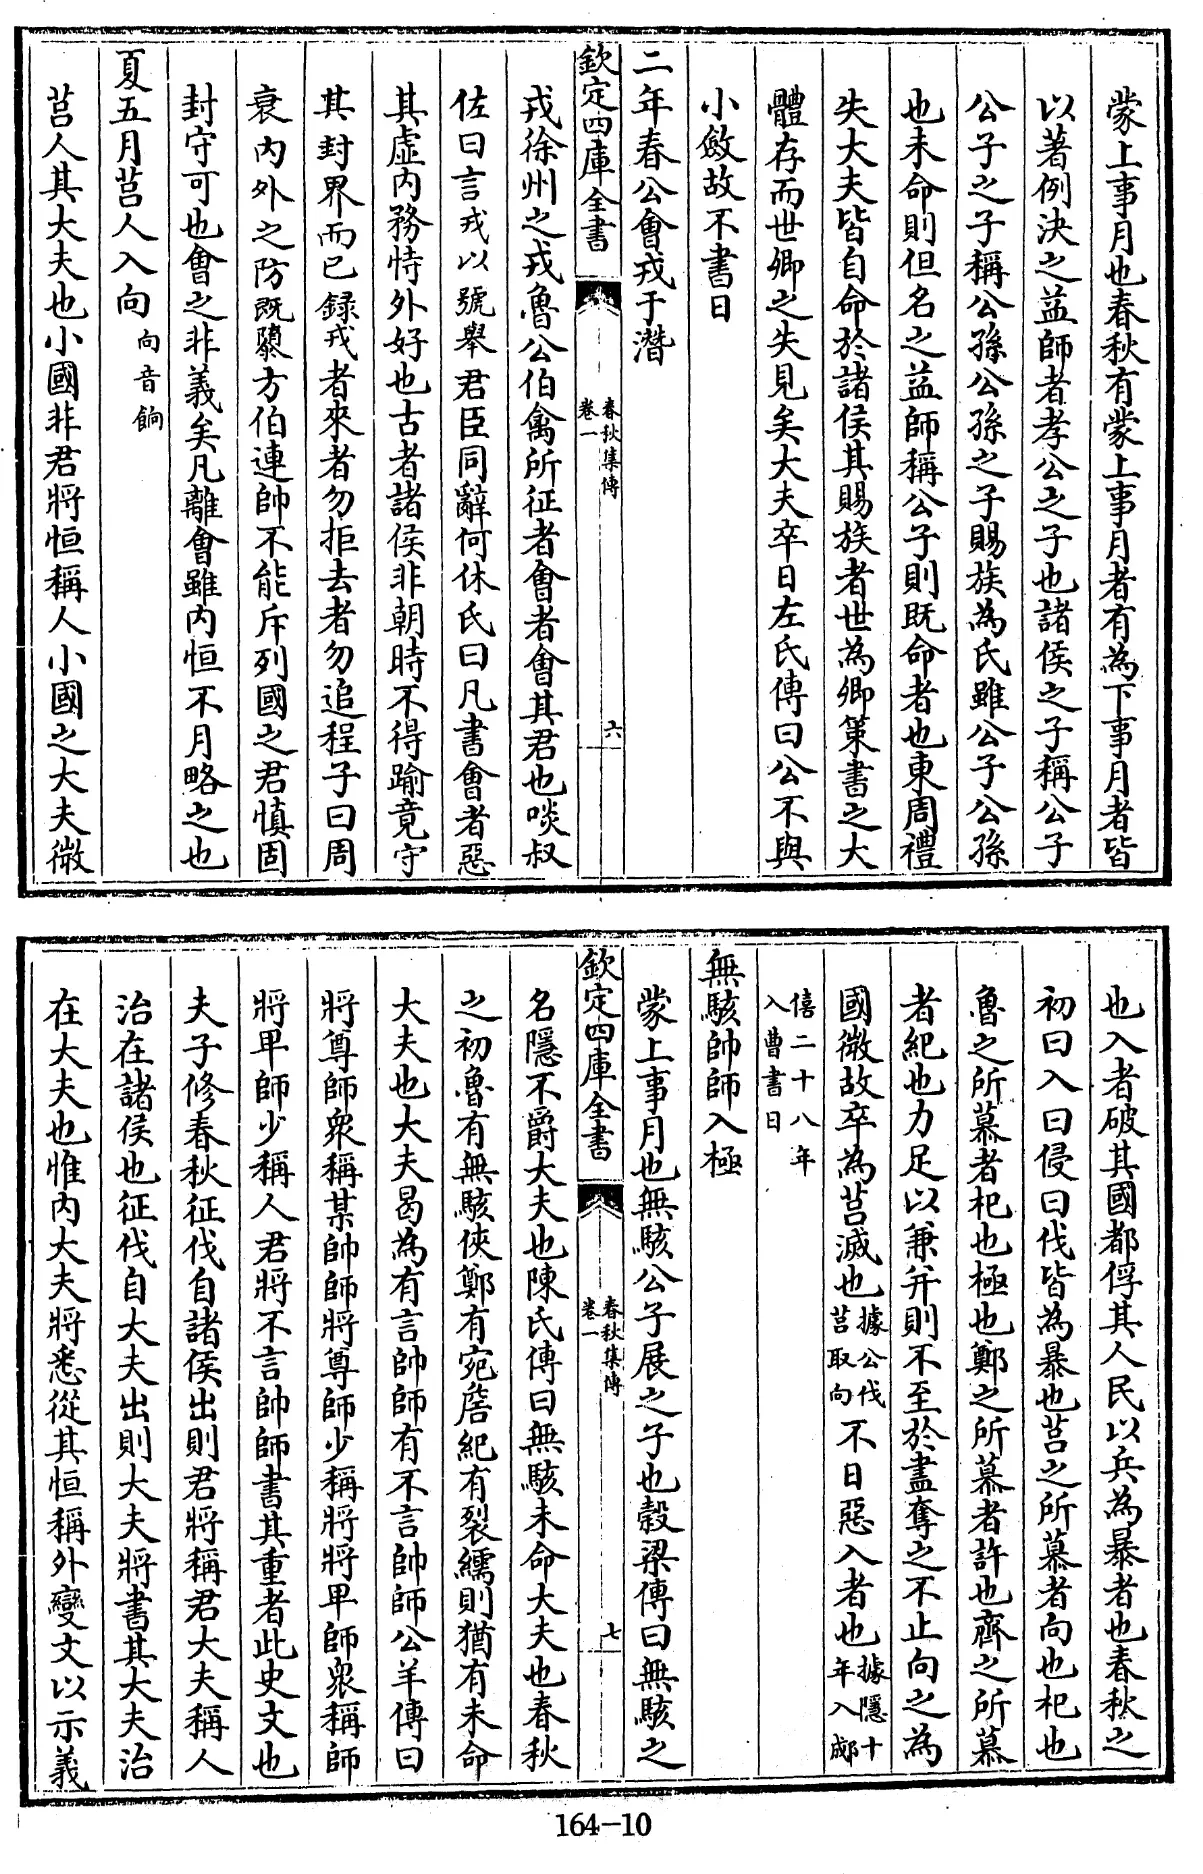 蒙上事月也春秋有蒙上事月者有為下事月者皆
以著例決之益師者孝公之子也諸侯之子稱公子
公子之子稱公孫公孫之子賜族為氏雖公子公孫
也未命則但名之益師稱公子則既命者也東周禮
失大夫皆自命於諸侯其賜族者世為卿策書之大
體存而世卿之失見矣大夫卒日左氏傳曰公不與
小斂故不書日
二年春公會戎于潛
欽定四庫全書
春秋集傳
卷一
六
戎徐州之戎魯公伯禽所征者會者會其君也啖叔
佐曰言戎以號舉君臣同辭何休氏曰凡書會者惡
其虛內務恃外好也古者諸侯非朝時不得踰竟守
其封界而已録戎者來者勿拒去者勿追程子曰周
衰內外之防既隳方伯連帥不能斥列國之君慎固
封守可也會之非義矣凡離會雖內恒不月略之也
夏五月莒人入向向音餉
莒人其大夫也小國非君將恒稱人小國之大夫微
也入者破其國都俘其人民以兵為暴者也春秋之
初曰入曰侵曰伐皆為暴也莒之所慕者向也杞也
魯之所慕者杞也極也鄭之所慕者許也齊之所慕
者紀也力足以兼并則不至於盡奪之不止向之為
國微故卒為莒滅也據公伐莒取向不日惡入者也據隱十年入郕
僖二十八年入曹書日
無駭帥師入極
蒙上事月也無駭公子展之子也榖梁傳曰無駭之
欽定四庫全書
春秋集傳
卷一
七
名隱不爵大夫也陳氏傳曰無駭未命大夫也春秋
之初魯有無駭俠鄭有宛詹紀有裂繻則猶有未命
大夫也大夫曷為有言帥師有不言帥師公羊傳曰
將尊師衆稱某帥師將尊師少稱將將卑師衆稱師
將卑師少稱人君將不言帥師書其重者此史文也
夫子修春秋征伐自諸侯出則君將稱君大夫稱人
治在諸侯也征伐自大夫出則大夫將書其大夫治
在大夫也惟內大夫將悉從其恒稱外變文以示義
164-10